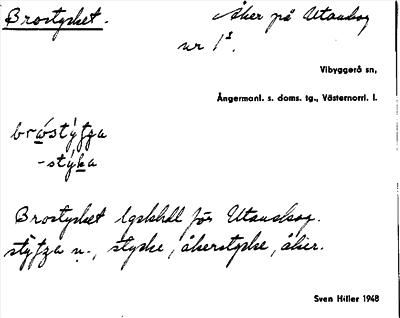 Brostycket.
Åker på Utanskog
nr 1².
Vibyggerå sn,
Ångermanl. s. doms. tg., Västernorrl. l.
bróstýƭʒa
-stýka
Brostycket lgskhll för Utanskog.
stýƭʒa n., stycke, åkerstycke, åker.
Sven Hiller 1948